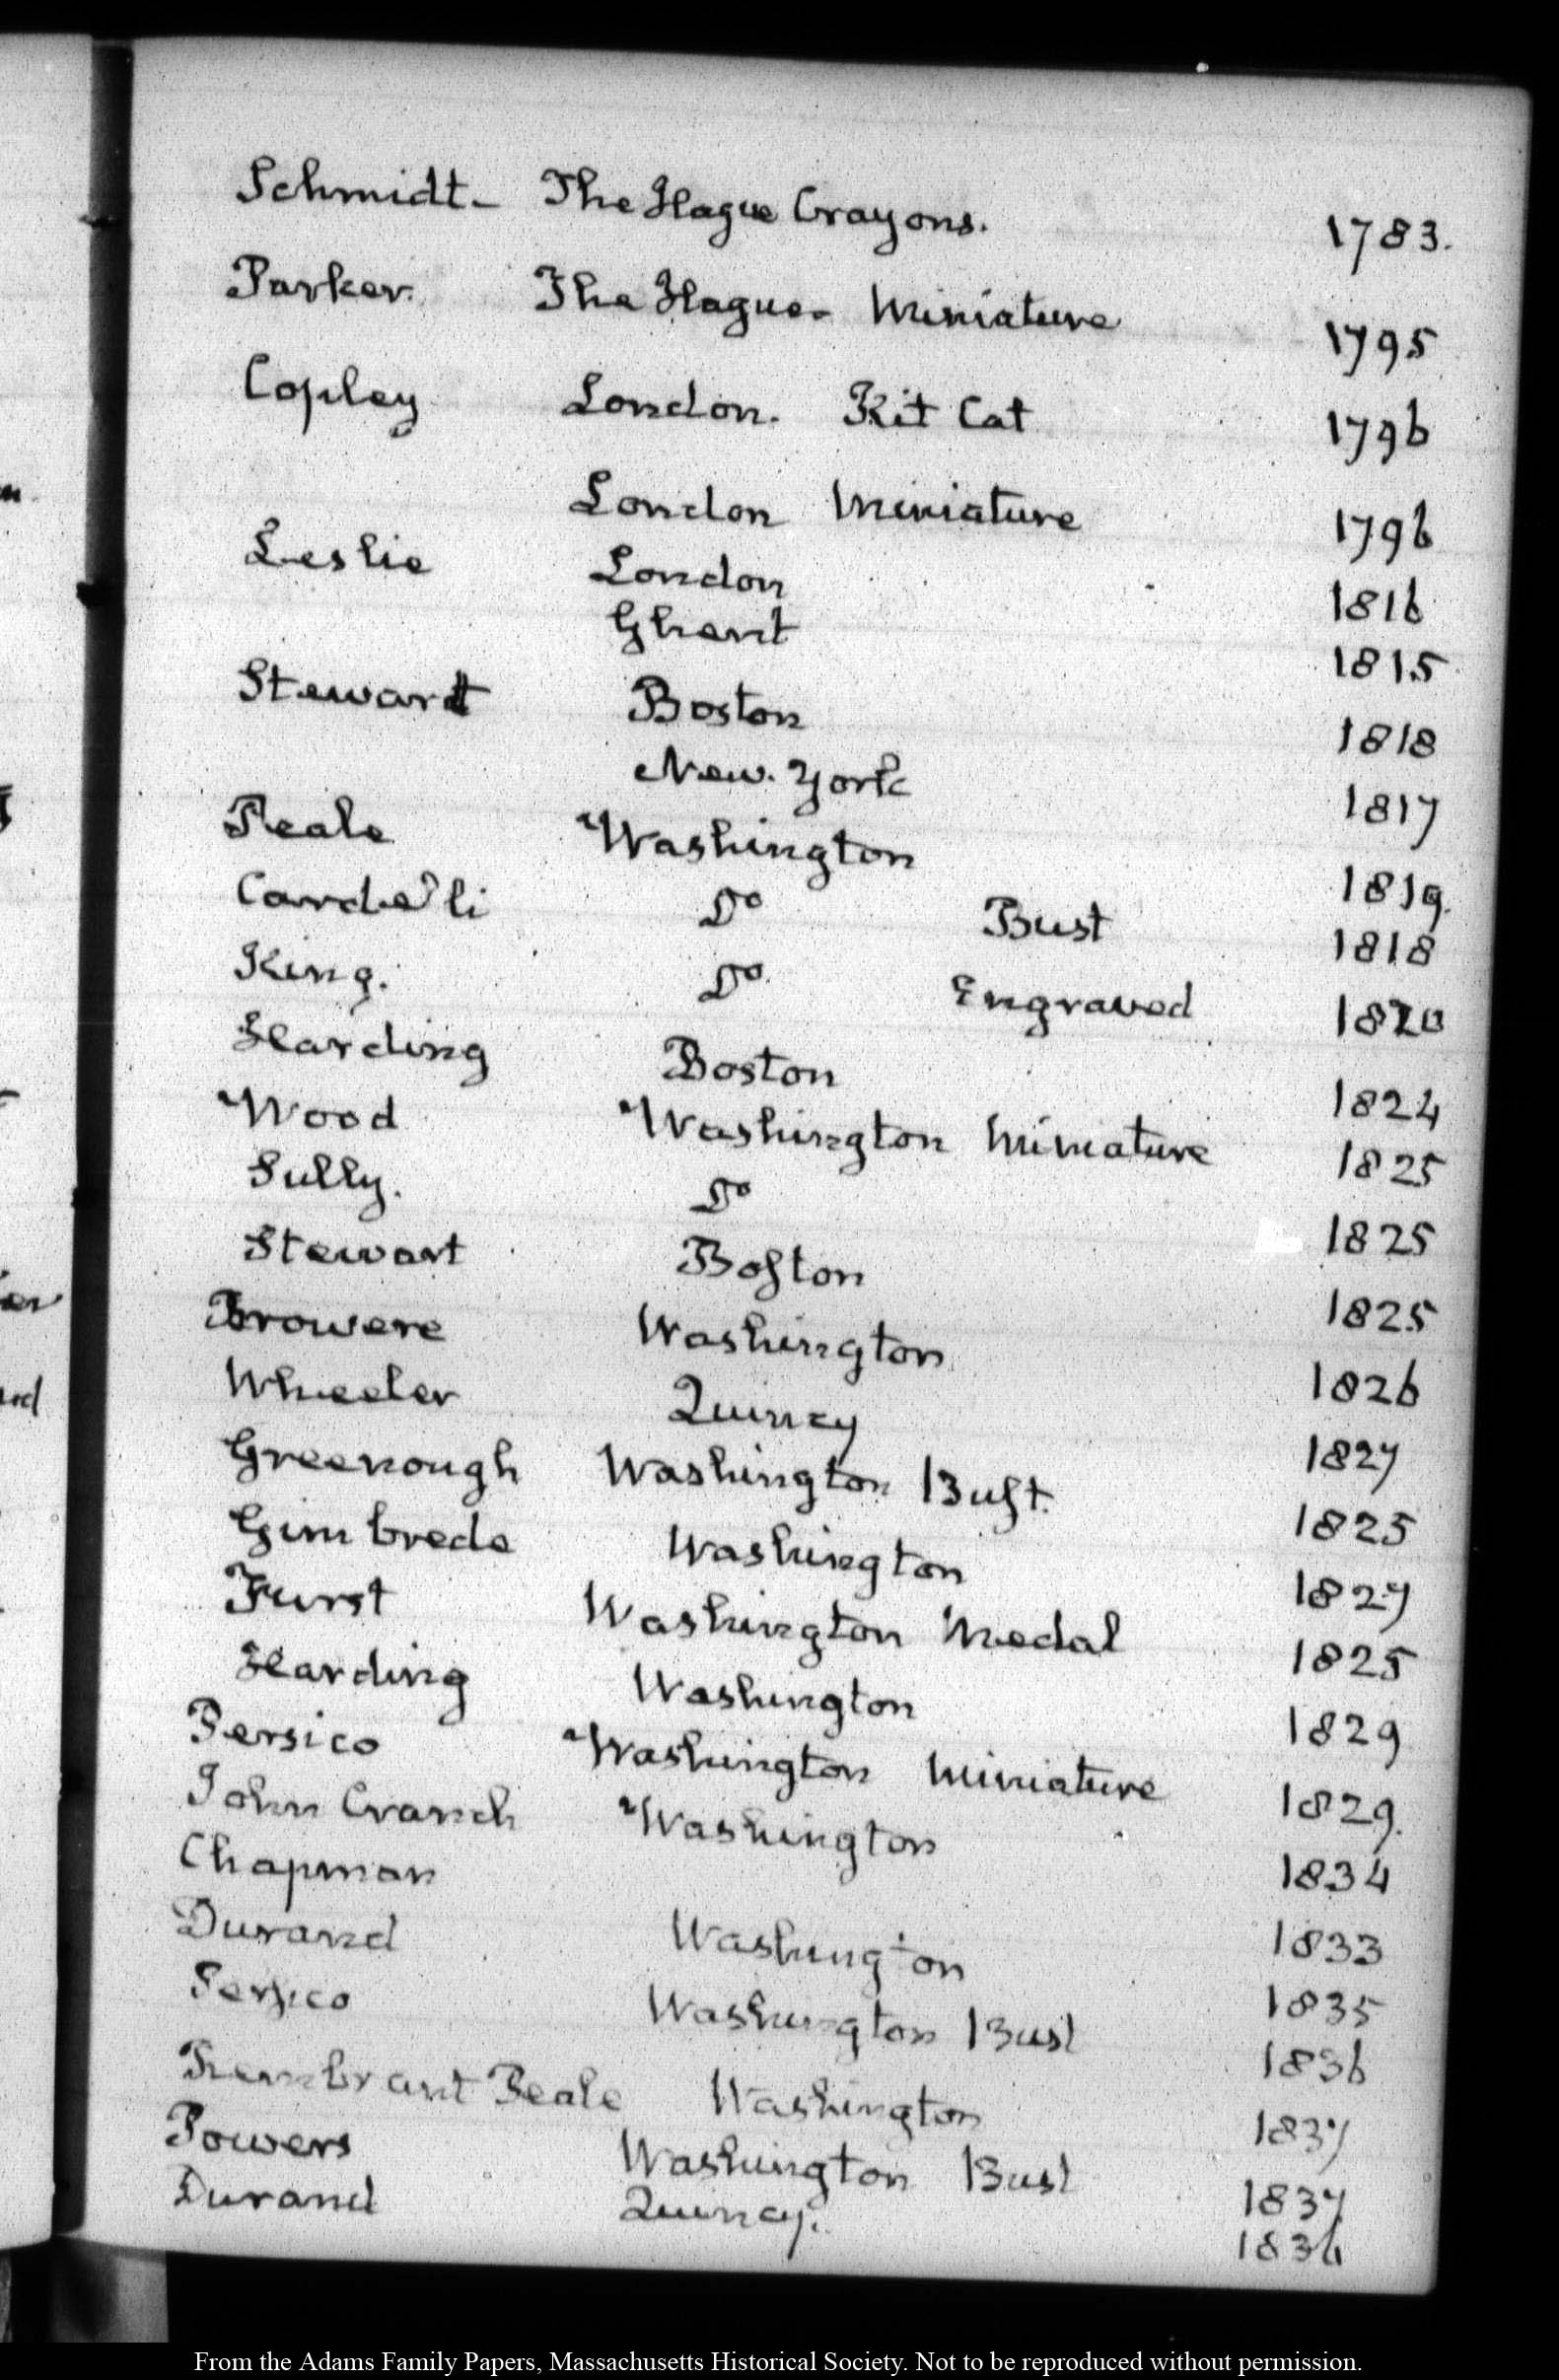 Schmidt- The Hague Crayons. 1783.
Parker. The Hague- Miniature 1795
Copley London. Kit Cat 1796
London Miniature 1796
Leslie London 1816
Ghent 1815
Steward Boston 1818
New. York 1817
Peale Washington 1819.
Cardelli Do Bust 1818
King. Do Engraved 1820
Harding Boston 1824
Wood Washington Miniature 1825
Sully. Do 1825
Stewart Boston 1825
Browere Washington 1826
Wheeler Quincy 1827
Greenough Washington Bust. 1825
Gimbrede Washington 1827
Furst Washington Medal 1825
Harding Washington 1829
Persico Washington Miniature 1829.
John Cranch Washington 1834
Chapman 1833
Durand Washington 1835
Persico Washington Bust 1836
Rembrant Peale Washington 1837
Powers Washington Bust 1837
Durand Quincy. 1836
From the Adams Family Papers, Massachusetts Historical Society. Not to be reproduced without permission.